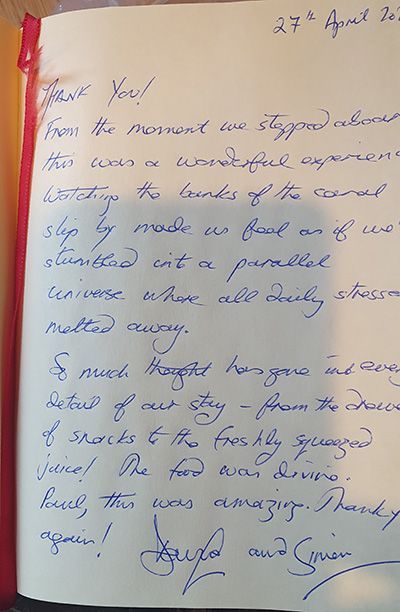 27th April 20
THANK YOU!
From the moment we stepped aboar
this was a wonderful experien
Watching the banks of the canal
slip by made us feel as if we'
stumbled into a parallel
universe where all daily stresse
melted away.
So much thought has gone into every
detail of our stay – from the drawe
of snacks to the freshly squeezed
juice! The food was divine.
Paul, this was amazing. Thank y
again!
and Simon